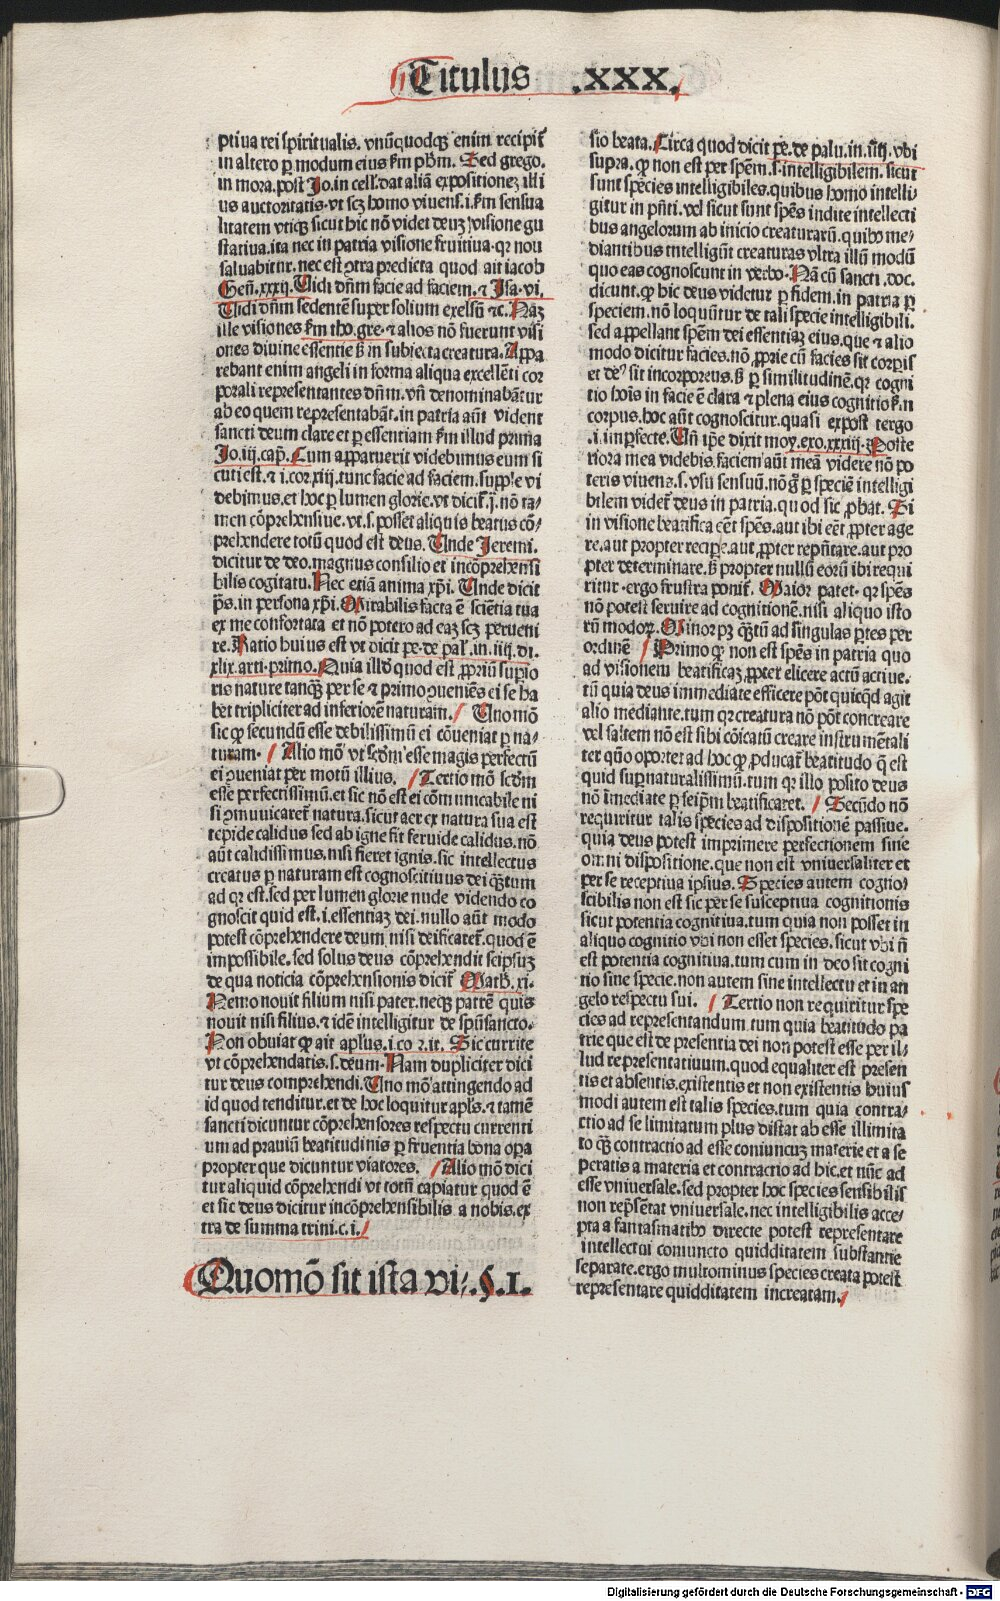 Titulus .XXX.
ptiua rei spiritualis. vnūquodqꝫ enim recipit̄
in altero ꝑ modum eius ẜm pħm. Sed grego.
in mora. post Jo. in cell. dat aliā expositionez illi
us auctoritatis. vt scꝫ homo viuens. i. ẜm sensua
litatem vtiqꝫ sicut hic nō videt deuꝫ visione gu
statiua. ita nec in patria visione fruitiua. qꝛ non
saluabitur. nec est ꝯtra predicta quod ait iacob
Gen̄. xxxij. Uidi dn̄m facie ad faciem. ⁊ Isa. vi.
Uidi dn̄m sedentē super solium excelsū ⁊c. Naꝫ
ille visiones ẜm tho. gre. ⁊ alios nō fuerunt visi
ones diuine essentie ß in subiecta creatura. Appa
rebant enim angeli in forma aliqua excellēti cor
porali representantes dn̄m. vn̄ denominabātur
ab eo quem representabāt. in patria aūt vident
sancti deum clare et ꝑ essentiam ẜm illud prima
Jo. iij. cap̄. Cum apparuerit videbimus eum si
cuti est. ⁊ i. cor. xiij. tunc facie ad faciem. supple vi
debimus. et hoc ꝑ lumen glorie. vt dicit̄. j̄. nō ta/
men cōprehensiue. vt. s. posset aliquis beatus cō/
prehendere totū quod est deus. Unde Jeremi.
dicitur de deo. magnus consilio et incōprehensi
bilis cogitatu. Nec etiā anima xp̄i. Unde dicit
p̄s. in persona xp̄i. Mirabilis facta ē scientia tua
ex me confortata et nō potero ad eaꝫ scꝫ perueni
re. Ratio huius est vt dicit pe. de pal. in. iiij. di.
xlix. arti. primo. Quia illd̄ quod est ꝓpriū supio
ris nature tanqꝫ per se ⁊ primo ꝯueniēs ei se ha
bet tripliciter ad inferiorē naturam. Uno mō
sic ꝙ secundū esse debilissimū ei cōueniat ꝑ na/
turam. Alio mō vt scd̄m esse magis perfectū
ei ꝯueniat per motū illius. Tertio mō scd̄m
esse perfectissimū. et sic nō est ei cōmunicabile ni
si ꝯmunicaret̄ natura. sicut aer ex natura sua est
tepide calidus sed ab igne fit feruide calidus. nō
aūt calidissimus. nisi fieret ignis. sic intellectus
creatus ꝑ naturam est cognoscitiuus dei qꝫtum
ad qꝛ est. sed per lumen glorie nude videndo co
gnoscit quid est. i. essentiaꝫ dei. nullo aūt modo
potest cōprehendere deum. nisi deificaret̄. quod ē
impossibile. sed solus deus cōprehendit seipsuꝫ
de qua noticia cōprehensionis dicit̄ Math̄. xi.
Nemo nouit filium nisi pater. neqꝫ patrē quis
nouit nisi filius. ⁊ idē intelligitur de spūsancto.
Non obuiat ꝙ ait apl̄us. i. co r. ix. Sic currite
vt cōprehendatis. s. deum. Nam dupliciter dici
tur deus comprehendi. Uno mō attingendo ad
id quod tenditur. et de hoc loquitur apl̄s. ⁊ tamē
sancti dicuntur cōprehensores respectu currenti
um ad prauiū beatitudinis ꝑ feruentia bona oꝑa
propter que dicuntur viatores. Alio mō dici
tur aliquid cōprehendi vt totū capiatur quod ē
et sic deus dicitur incōprehensibilis a nobis. ex
tra de summa trini. c. i.
Quomō sit ista vi/. §. I.
sio beata. Circa quod dicit pe. de palu. in. iiij. vbi
supra. ꝙ non est per spēm. s. intelligibilem. sicut
sunt species intelligibiles. quibus homo intelli
gitur in pn̄ti. vel sicut sunt spēs indite intellecti
bus angelorum ab initio creaturarū. quibꝰ me/
diantibus intelligūt creaturas vltra illū modū
quo eas cognoscunt in verbo. Nā cū sancti. doc.
dicunt. ꝙ hic deus videtur ꝑ fidem. in patria ꝑ
speciem. nō loquūtur de tali specie intelligibili.
sed appellant spēm dei essentiaꝫ eius. que ⁊ alio
modo dicitur facies. nō ꝓprie cū facies sit corpis
et deꝰ sit incorporeus. ß ꝑ similitudinē. qꝛ cogni
tio hoīs in facie ē clara ⁊ plena eius cognitio ẜ. n
corpus. hoc aūt cognoscitur. quasi ex post tergo
. i. imperfecte. Un̄ ip̄e dixit moy. exo. xxxiij. Poste
riora mea videbis. faciem aūt meā videre nō po
teris viuens. s. vsu sensuū. nō g̊ ꝑ speciē intelligi
bilem videt̄ deus in patria. quod sic ꝓbat. Si
in visione beatifica eēt spēs. aut ibi eēt ꝓpter age
re. aut propter recipe. aut ꝓpter repn̄tare. aut pro
pter determinare. ß propter nullū eorū ibi requi
ritur. ergo frustra ponit̄. Maior patet. qꝛ spēs
nō potest seruire ad cognitionē. nisi aliquo isto
rū modoꝝ. Minor pꝫ qꝫtū ad singulas ꝑtes per
ordinē Primo qꝛ non est spēs in patria quo
ad visionem beatificaꝫ ꝓpter elicere actū actiue.
tū quia deus immediate efficere pōt quicqd̄ agit
alio mediante. tum qꝛ creatura nō pōt concreare
vel saltem nō est sibi cōicatū creare instrumētali
ter quō oporter ad hoc ꝙ ꝓducat̄ beatitudo q̄ est
quid suꝑnaturalissimū. tum qꝛ illo posito deus
nō īmediate ꝑ seip̄m beatificaret. Secūdo nō
requiritur talis species ad dispositionē passiue.
quia deus potest imprimere perfectionem sine
omni dispositione. que non est vniuersaliter et
per se receptiua ipsius. Species autem cogno/
scibilis non est sic per se susceptiua cognitionis
sicut potentia cognitiua. tum quia non posset in
aliquo cognitio vbi non esset species. sicut vbi n̄
est potentia cognitiua. tum cum in deo sit cogni
tio sine specie. non autem sine intellectu et in an
gelo respectu sui. Tertio non requiritur spe
cies ad representandum. tum quia beatitudo pa
trie que est de presentia dei non potest esse per il/
lud representatiuum. quod equaliter est presen
tis et absentis. existentis et non existentis huius
modi autem est talis species. tum quia contra/
ctio ad se limitatum plus distat ab esse illimita
to qꝫ contractio ad esse coniuncuꝫ materie et a se
peratis a materia et contractio ad hic. et nūc ad
esse vniuersale. sed propter hoc species sensibilis
non repn̄tat vniuersale. nec intelligibilis acce/
pta a fantasmatibꝰ directe potest representare
intellectui coniuncto quidditatem substantie
separate. ergo multominus species creata potest
representare quidditatem increatam.
Digitalisierung gefördert durch die Deutsche Forschungsgemeinschaft - DFG